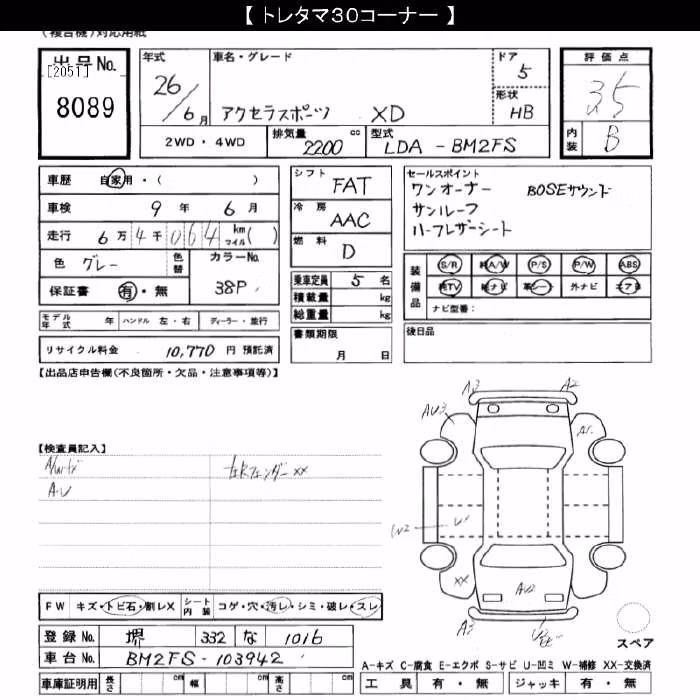 【 トレタマ30コーナー 】
(複合機)対応用紙
出品No. [2051] 8089
年式 26/6月
車名・グレード アクセラスポーツ XD
ドア 5
形状 HB
評価点 3.5
内装 B
2WD・4WD
排気量 2200 cc
型式 LDA - BM2FS
車歴 自家用・( )
車検 9年 6月
走行 6万4千064 km マイル( )
色 グレー 色替 カラーNo. 38P
保証書 有・無
シフト FAT
冷房 AAC
燃料 D
乗車定員 5名
積載量 kg
総重量 kg
セールスポイント
ワンオーナー BOSEサウンド
サンルーフ
ハーフレザーシート
装備品 S/R 純A/W P/S P/W ABS
純TV 純ナビ 革シート 外ナビ エアB
ナビ型番:
モデル年式 年 ハンドル 左・右 ディーラー・並行
書類期限 月 日
後日品
リサイクル料金 10,770 円 預託済
【出品店申告欄(不良箇所・欠品・注意事項等)】
【検査員記入】
A/Wキズ 左Rフェンダー XX
A・U
A3 A2
AU3 A1
W2
XX AU2
A3
スペア
FW キズ・トビ石・割レX シート内装 コゲ・穴・汚レ・シミ・破レ・スレ
登録No. 堺 332 な 1016
車台No. BM2FS-103942
A-キズ C-腐食 E-エクボ S-サビ U-凹ミ W-補修 XX-交換済
車庫証明用 長さ cm 幅 cm 高さ cm
工具 有・無 ジャッキ 有・無